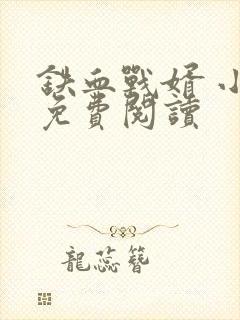 鉄血戰婿 小
免費閱讀
龍蕊簪